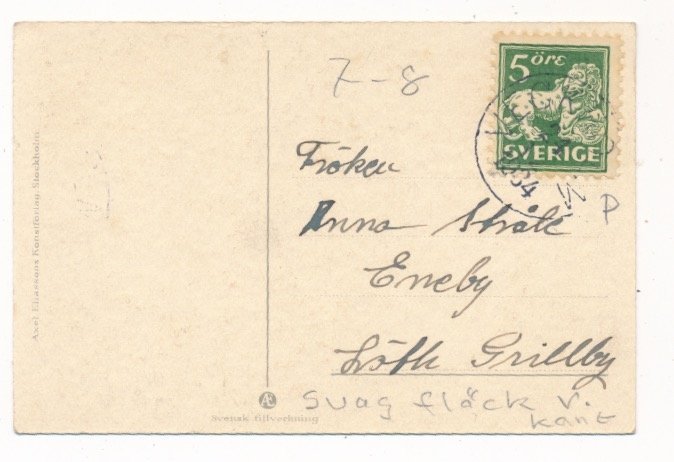 7-8
5 öre
SVERIGE
Fröken
Anna Stråle
Eneby
Löth Grillby
P
Axel Eliassons Konstförlag, Stockholm
Æ
Svensk tillverkning
Svag fläck v.
kant